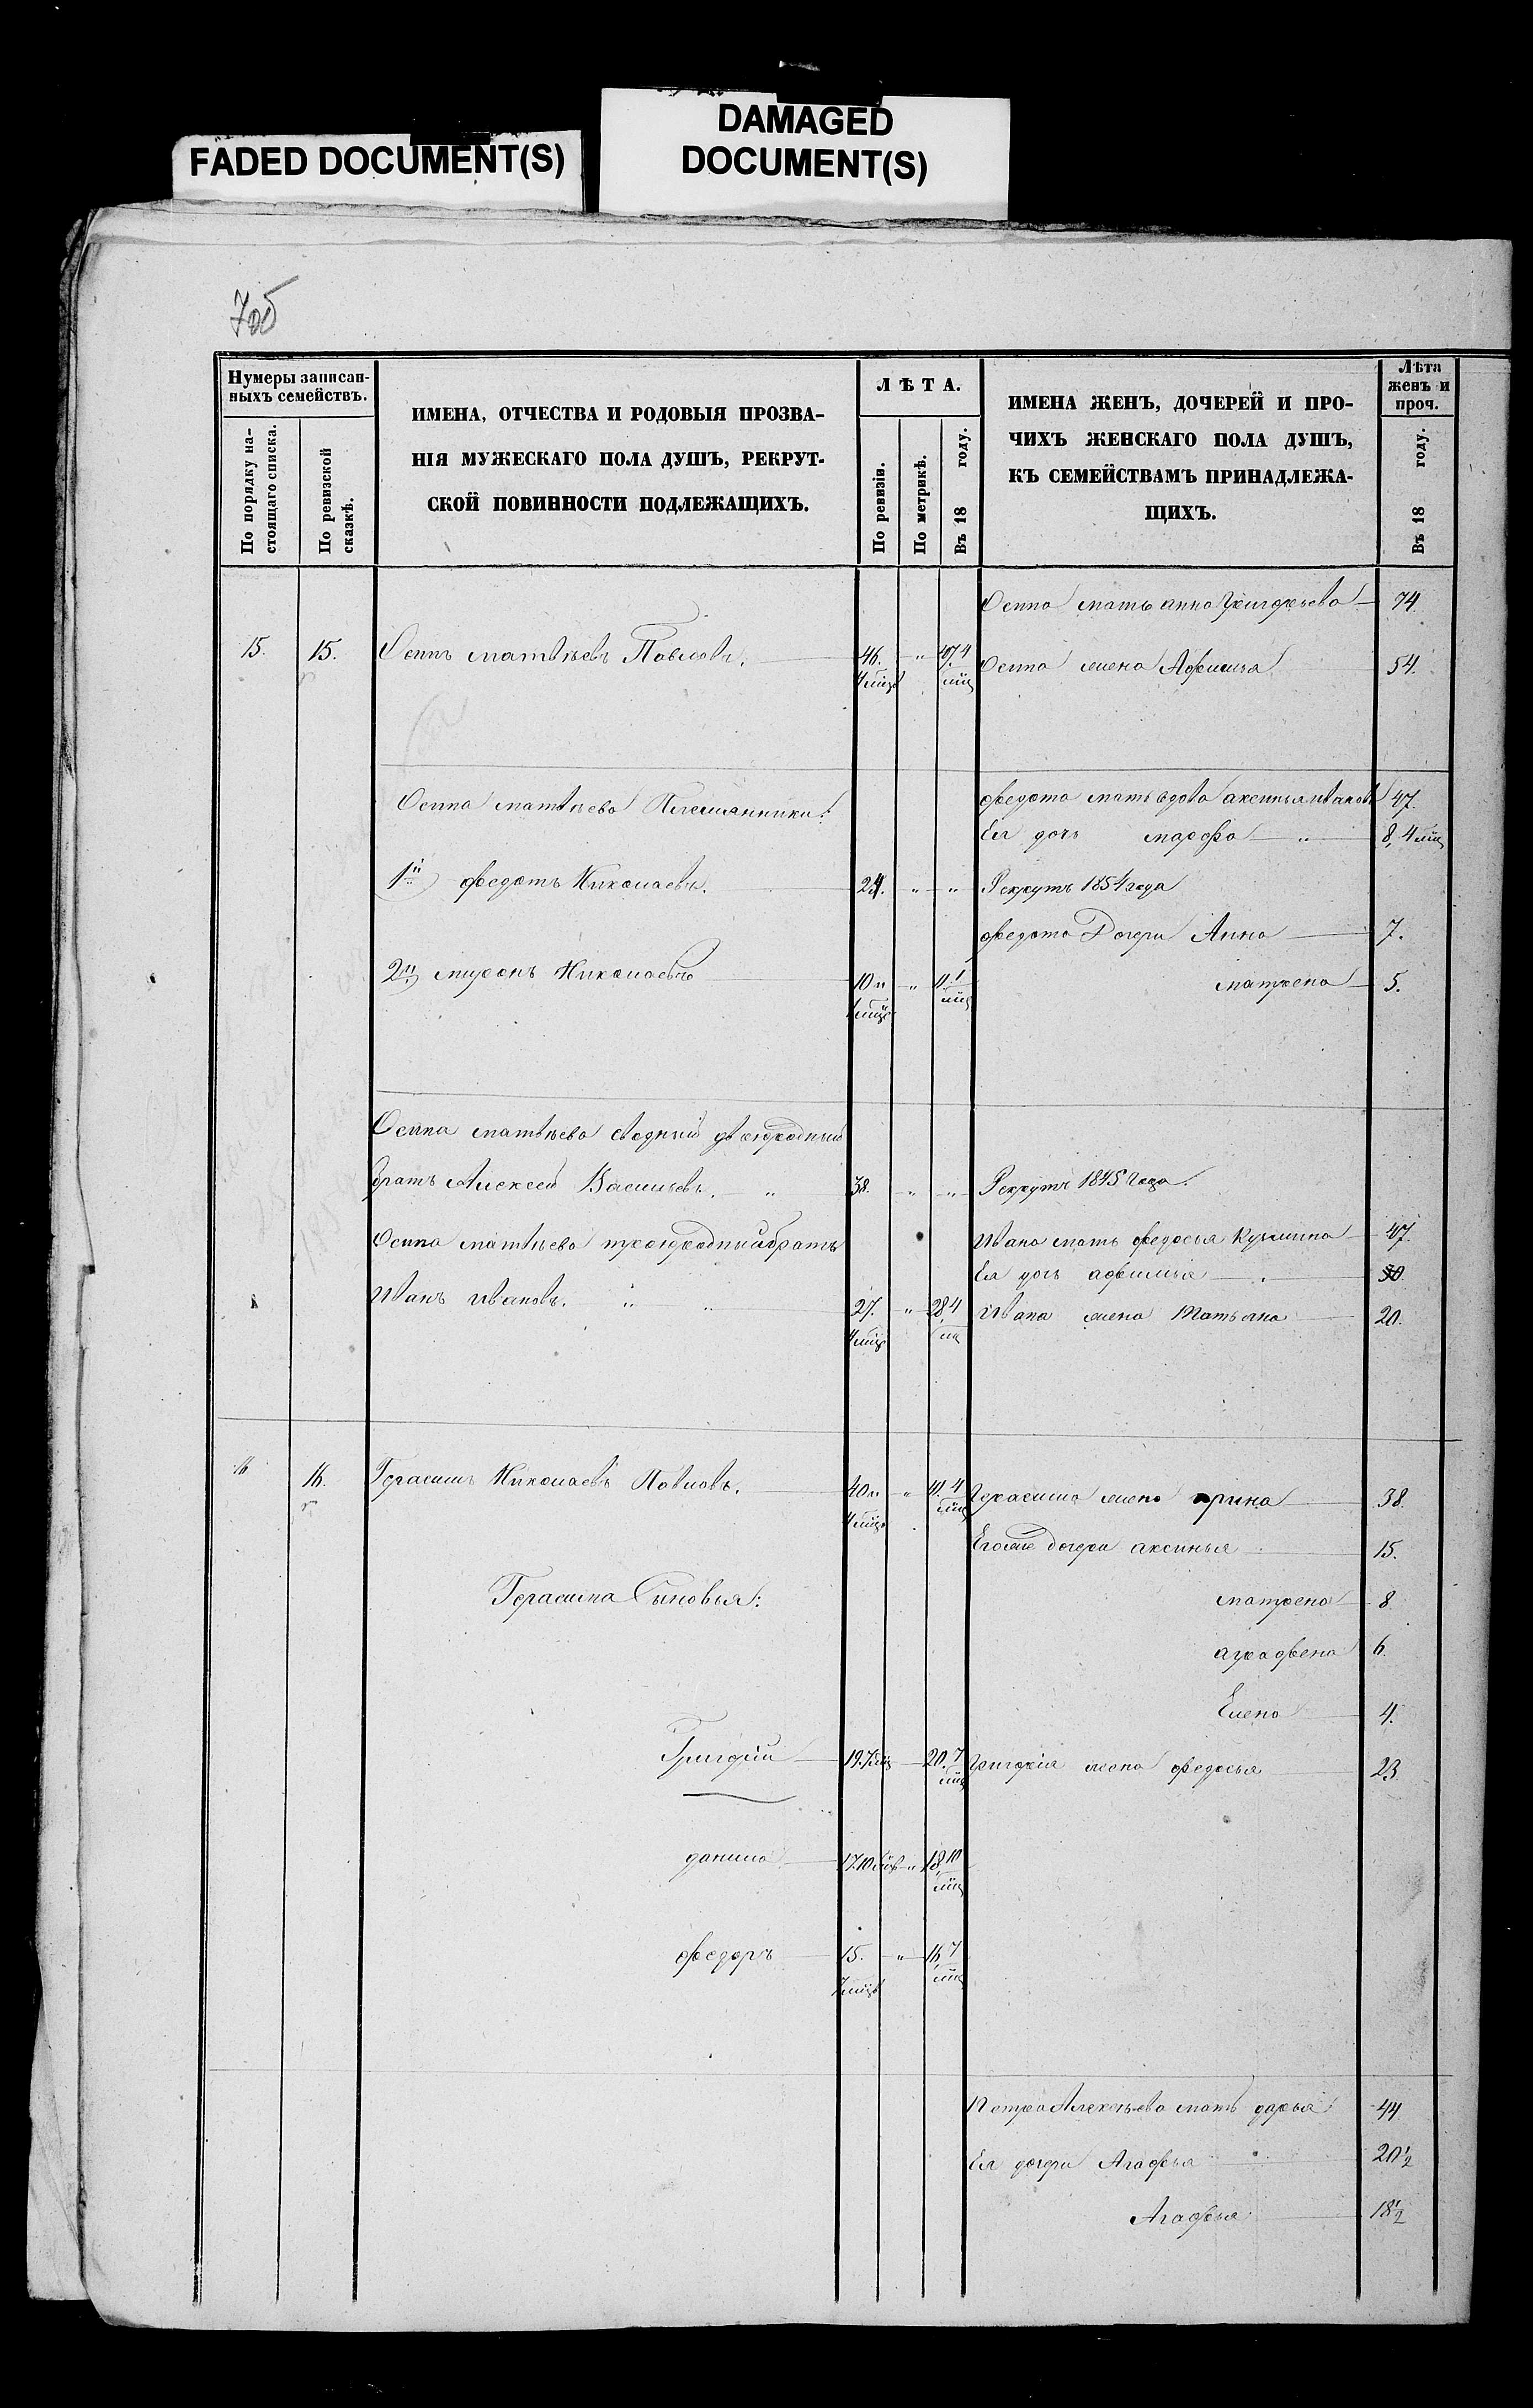 FADED DOCUMENT(S)
DAMAGED
DOCUMENT(S)
Нумеры записан-
ныхъ семействъ.
По порядку на-
стоящаго списка.
По ревизской
сказкѣ.
ИМЕНА, ОТЧЕСТВА И РОДОВЫЯ ПРОЗВА-
НІЯ МУЖЕСКАГО ПОЛА ДУШЪ, РЕКРУТ-
СКОЙ ПОВИННОСТИ ПОДЛЕЖАЩИХЪ.
ЛѢТА.
По ревизіи.
По метрикѣ.
Въ 18 году.
ИМЕНА ЖЕНЪ, ДОЧЕРЕЙ И ПРО-
ЧИХЪ ЖЕНСКАГО ПОЛА ДУШЪ,
КЪ СЕМЕЙСТВАМЪ ПРИНАДЛЕЖА-
ЩИХЪ.
Лѣта
женъ и
проч.
Въ 18 году.
Осипа мать анна Григорьева 74.
15. 15. Осипъ матвѣевъ Павловъ. 46. 4 мѣц 47. 4 мѣц Осипа жена Афимья 54.
Осипа матвѣева Племянники:
федота мать вдова аксинья иванов 47.
Ея дочь марфа 8, 4 мѣц
1й федотъ Николаевъ. 24. Рекрутъ 1854 года
федота Дочери Анна 7.
2й миронъ Николаевъ 10 и 1 мѣц 11. 1 мѣц матрена 5.
Осипа матвѣева сводный двоюродный
братъ Алексей Васильевъ. 38. Рекрутъ 1845 года.
Осипа матвѣева троюродный братъ
Ивана мать федосья Кузмина 47.
Ея дочь афимья
Иванъ ивановъ. 27. 4 мѣц 28 4 мѣц Ивана жена Татьяна 20.
16 16. Герасимъ Николаевъ Павловъ. 40 и 4 мѣц 41. 4 мѣц Герасима жена арина 38.
Егоже дочери аксинья 15.
Герасима Сыновья:
матрена 8
аграфена 6.
Елена 4.
Григорій 19. 7 мѣц 20. 7 мѣц Григорія жена федосья 23
данила 17. 10 мѣц 18, 10 мѣц
федоръ 15. 7 мѣц 16, 7 мѣц
Петра Алексѣева мать дарья 44
Ея дочери Агафья 20 1/2
Агафья 18 1/2